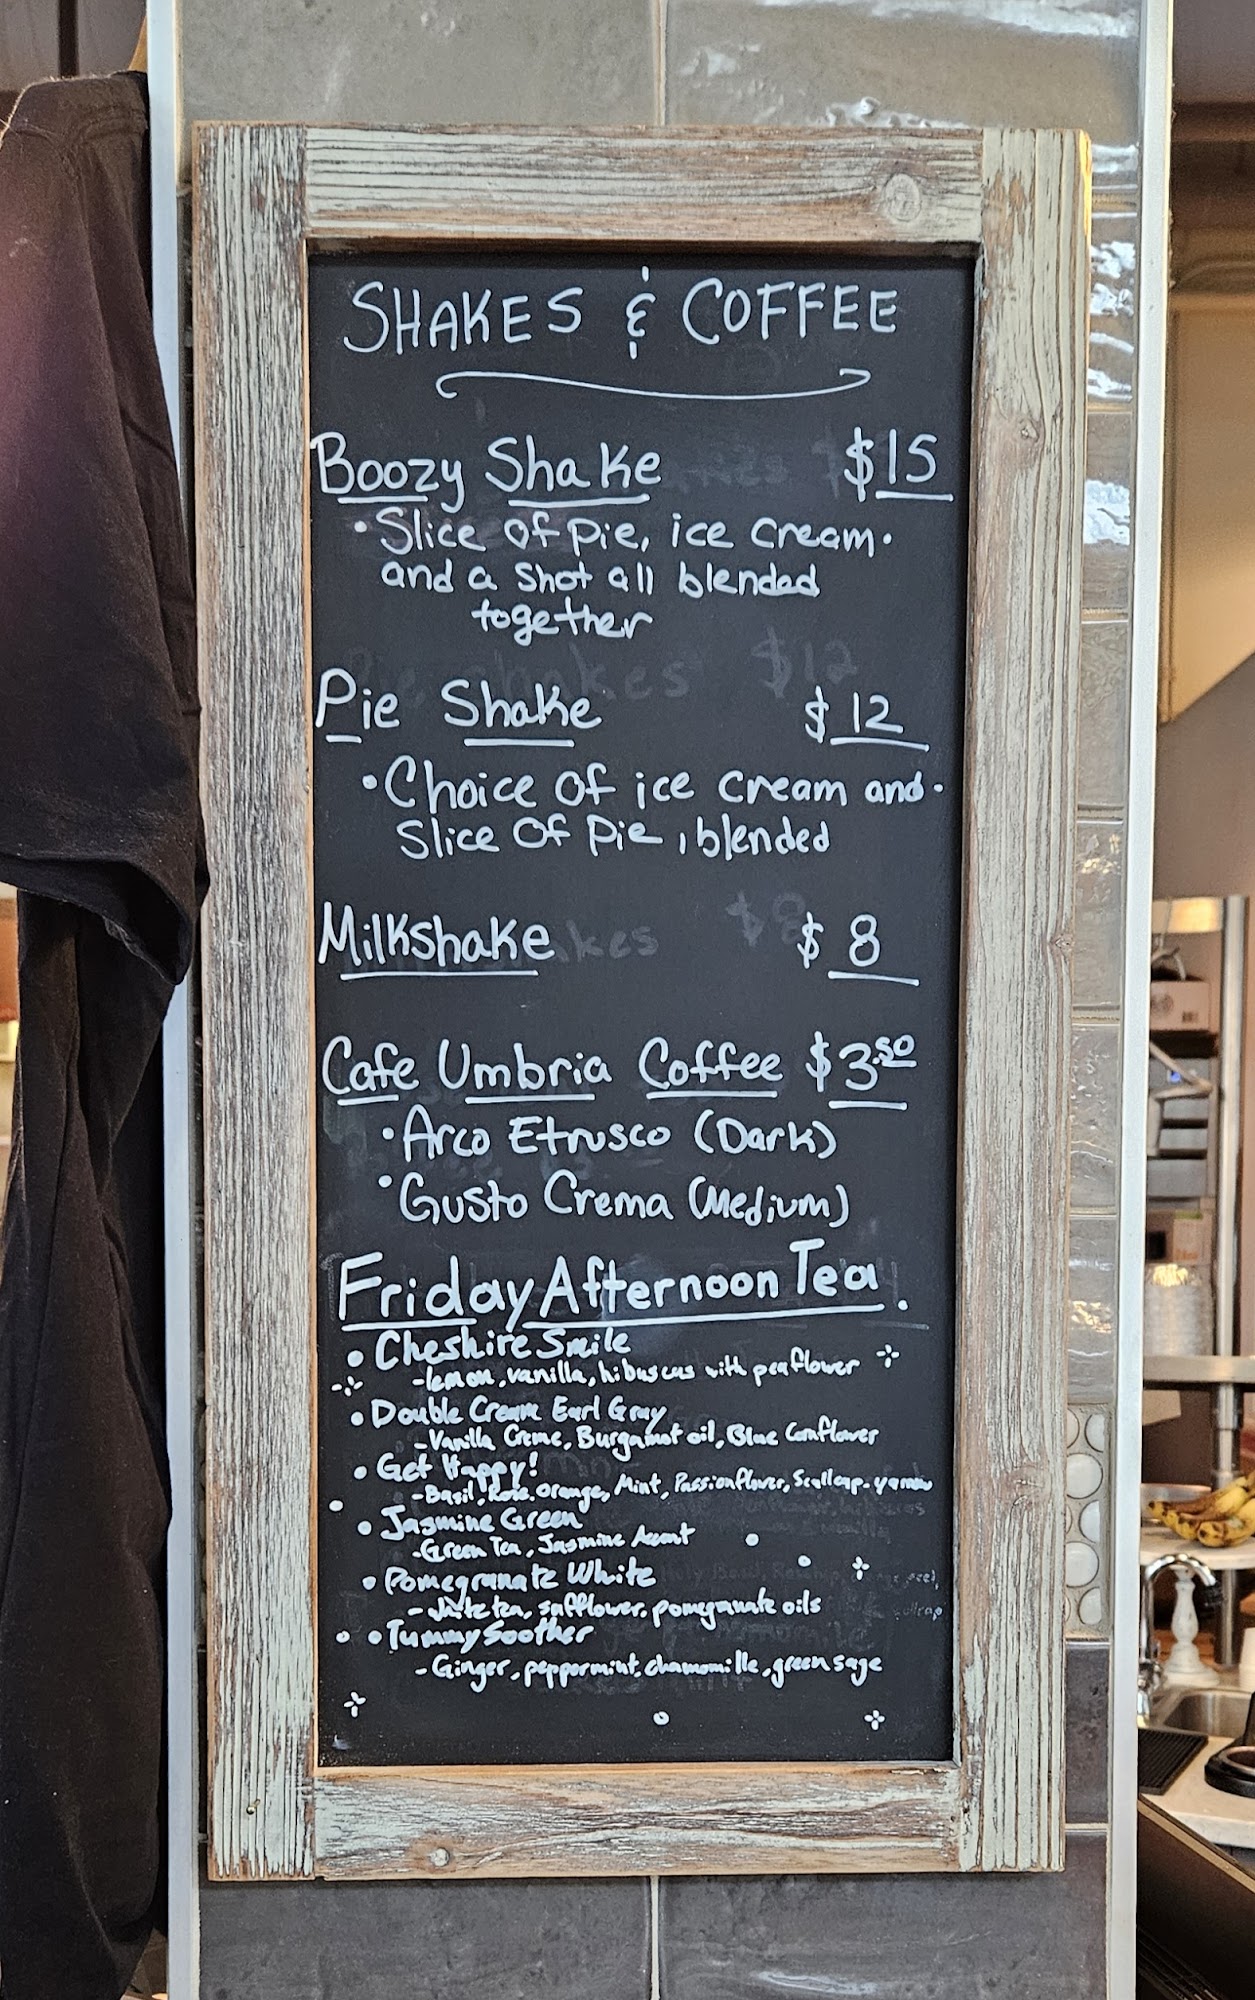 SHAKES & COFFEE
Boozy Shake $15
• Slice of pie, ice cream.
and a shot all blended
together
Pie Shake $12
• Choice of ice cream and.
Slice of pie, blended
Milkshake $8
Cafe Umbria Coffee $3.50
• Arco Etrusco (Dark)
• Gusto Crema (Medium)
Friday Afternoon Tea.
• Cheshire Smile
- lemon, vanilla, hibuscus with peaflower
• Double Cream Earl Gray
- Vanilla Creme, Burgamot oil, Blue Cornflower
• Get Happy!
- Basil, Rose, orange, Mint, Passionflower, Scullcap, yarrow
• Jasmine Green
- Green Tea, Jasmine Accent
• Pomegranate White
- White tea, safflower, pomegranate oils
• Tummy Soother
- Ginger, peppermint, chamomille, green sage